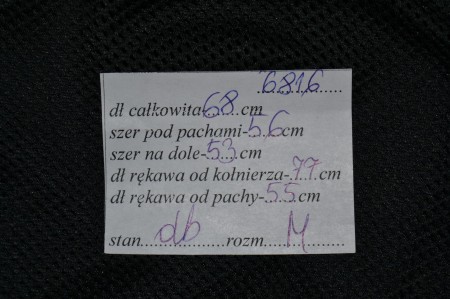 6816
dł całkowita-68 cm
szer pod pachami-56cm
szer na dole-53cm
dł rękawa od kołnierza-77cm
dł rękawa od pachy-55cm
stan db rozm M